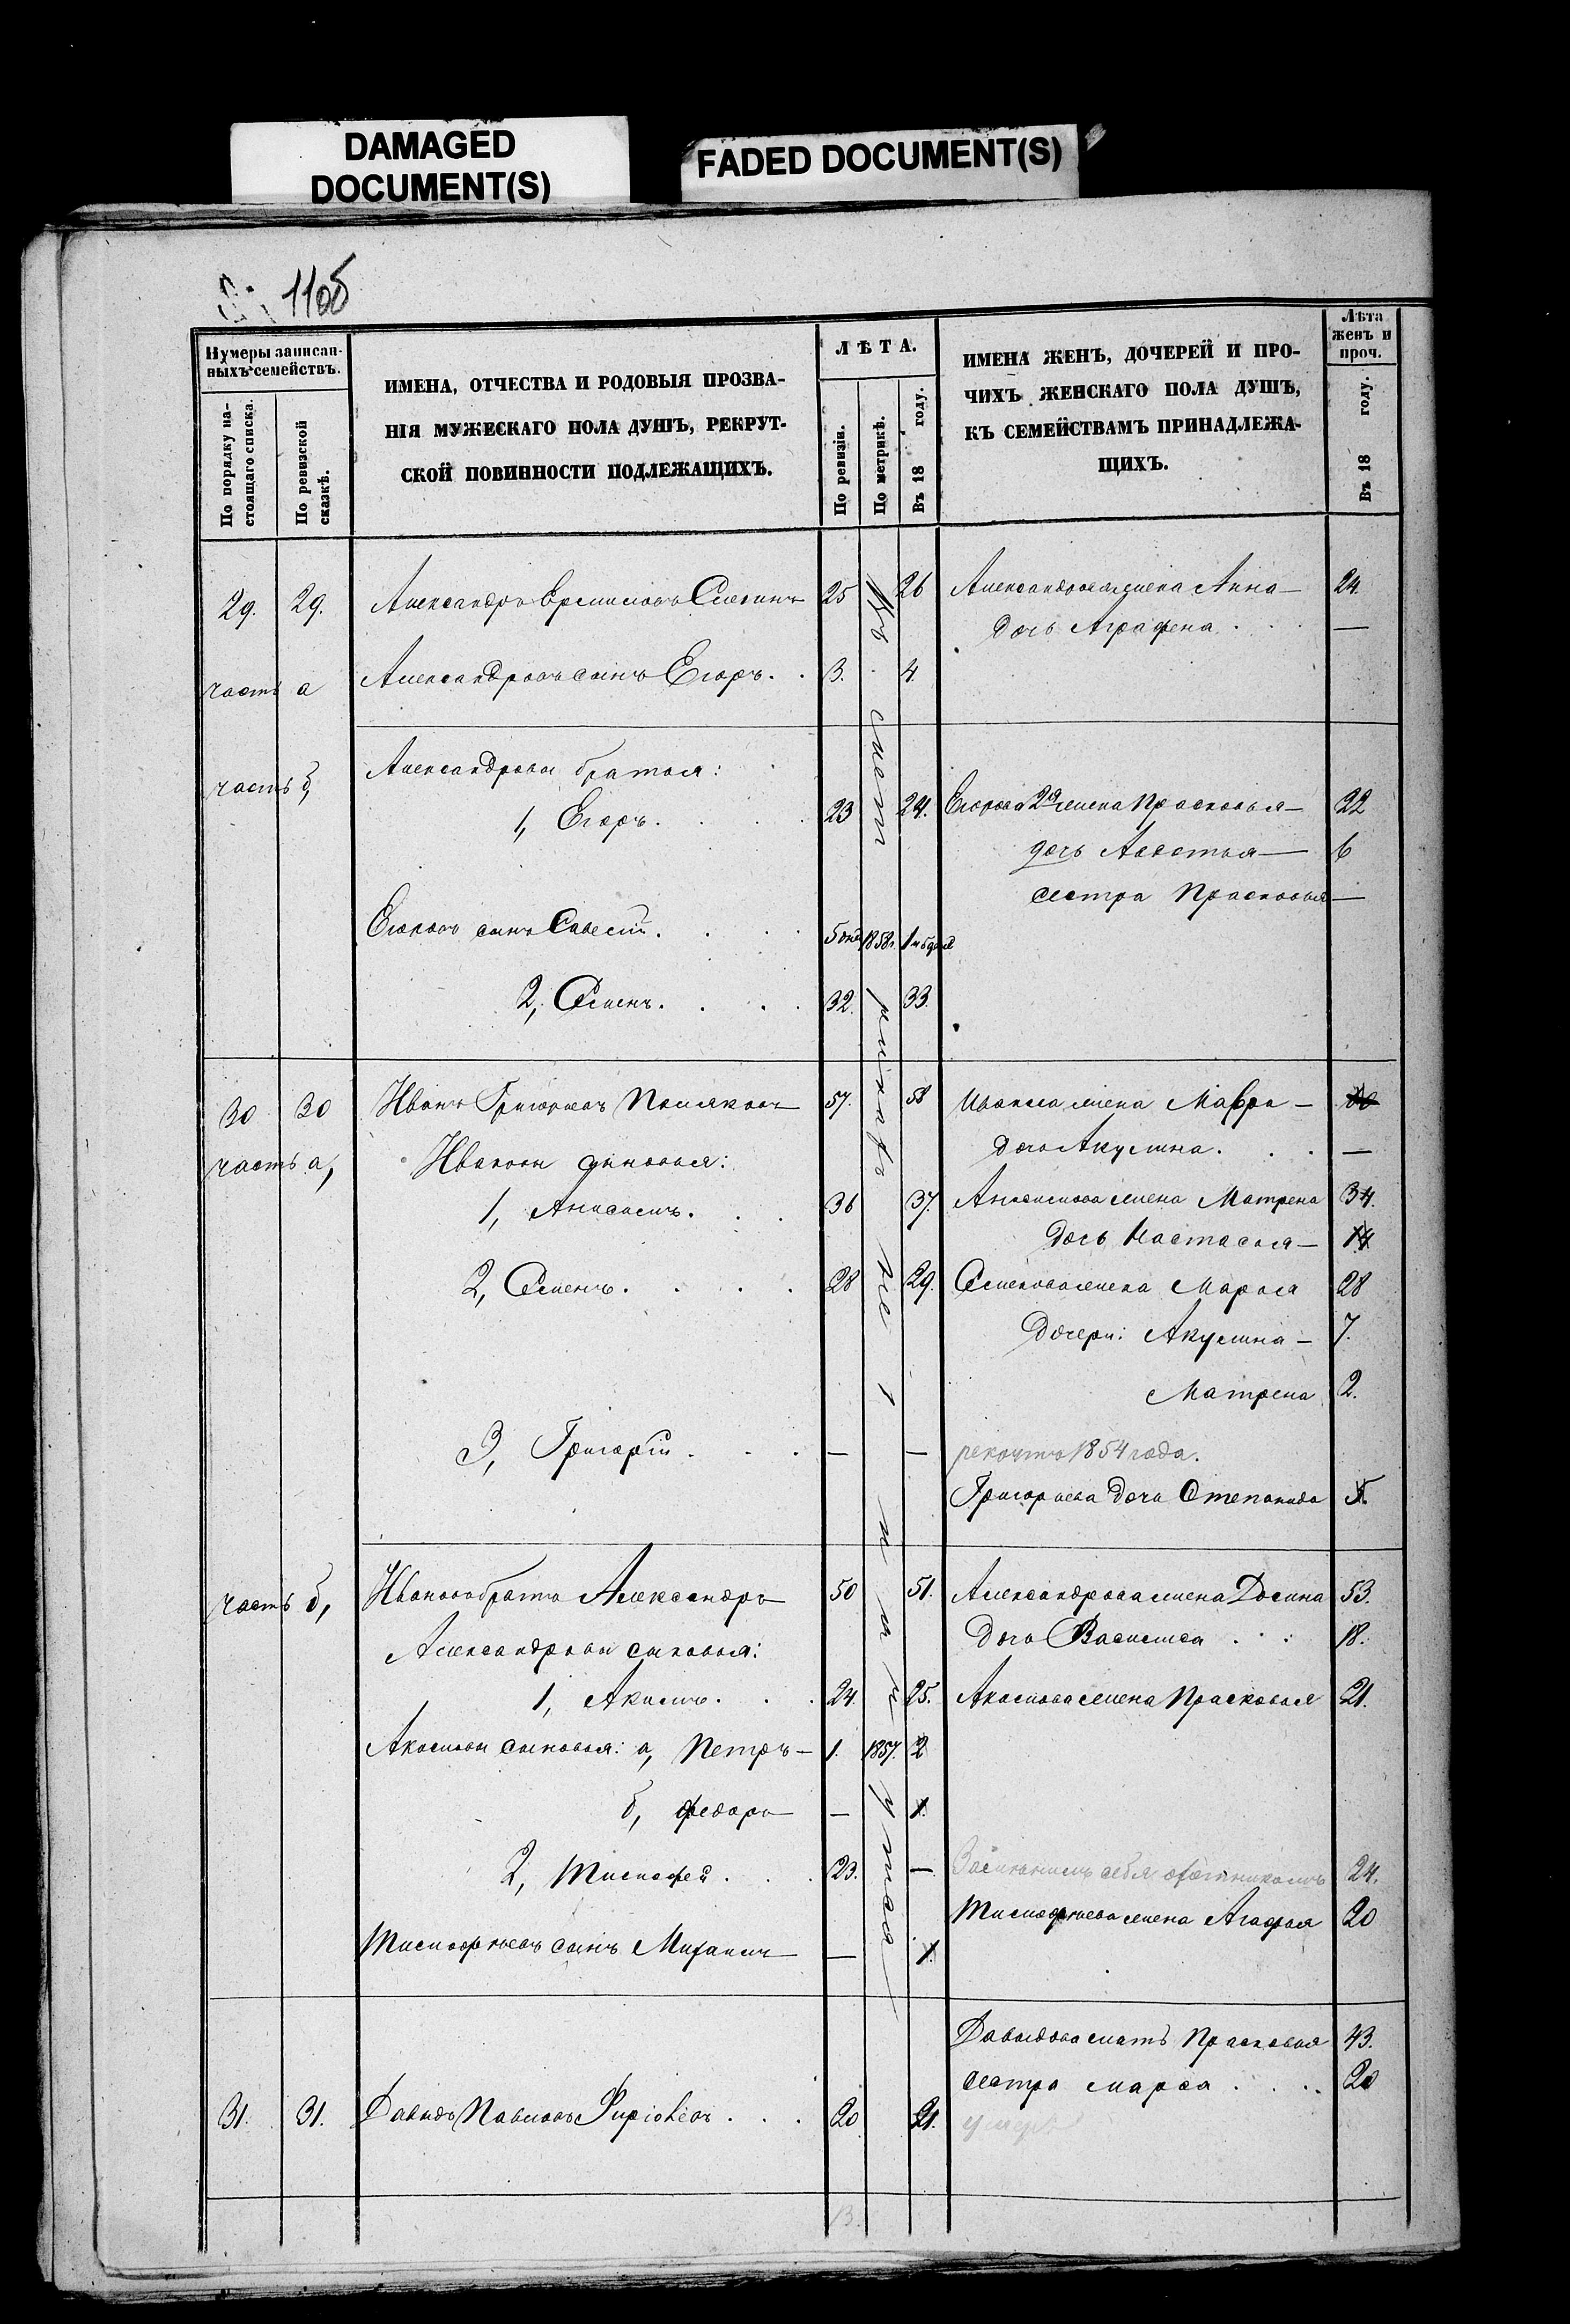 DAMAGED
DOCUMENT(S)
FADED DOCUMENT(S)
1105
Нумеры записан-
ныхъ семействъ.
По порядку на-
стоящаго списка.
По ревизской
сказкѣ.
ИМЕНА, ОТЧЕСТВА И РОДОВЫЯ ПРОЗВА-
НІЯ МУЖЕСКАГО ПОЛА ДУШЪ, РЕКРУТ-
СКОЙ ПОВИННОСТИ ПОДЛЕЖАЩИХЪ.
ЛѢТА.
По ревизіи.
По метрикѣ.
Въ 18 году.
ИМЕНА ЖЕНЪ, ДОЧЕРЕЙ И ПРО-
ЧИХЪ ЖЕНСКАГО ПОЛА ДУШЪ,
КЪ СЕМЕЙСТВАМЪ ПРИНАДЛЕЖА-
ЩИХЪ.
Лѣта
женъ и
проч.
Въ 18 году.
29. 29. Александръ 25 26 Александрова жена Анна — 24.
дочь Аграфена . . . —
часть а Александровъ сынъ Егоръ . . 3. 4.
часть б, Александровы братья:
1, Егоръ . . . . 23 24. Егорова 2я жена Прасковья — 22
дочь Авдотья — 6
сестра Прасковья —
Егоровъ сынъ . . . 1858г.
2, Семенъ . . . . 32. 33.
30 30 Иванъ Григорьевъ Поляковъ 57. 58 Иванова жена Мавра —
часть а, Ивановы сыновья: дочь Акулина . . . —
1, Анисимъ . . . 36 37. Анисимова жена Матрена 34.
дочь Настасья — 14
2, Семенъ . . . . 28 29. Семенова жена Марья 28
Дочери: Акулина — 7.
Матрена 2.
3, Григорій . . . — — рекрутъ 1854 года.
Григорьева дочь Степанида 5.
часть б, Ивановъ братъ Александръ 50 51. Александрова жена 53.
Александровы сыновья: дочь Василиса . . : 18.
1, Акимъ . . . 24. 25. Акимова жена Прасковья 21.
Акимовы сыновья: а, Петръ — 1. 1857. 2
б, Федоръ — 1.
2, Тимофей . . . 23. — себя охотникомъ 24.
Тимофеева жена Агафья 20
Тимофеевъ сынъ Михаилъ — 1.
Давыдова мать Прасковья 43.
сестра Марья . . . . 20
31. 31. Давыдъ Павловъ . . . 20 21.